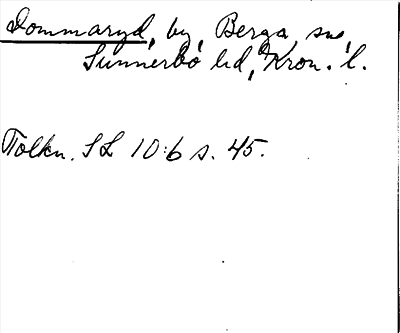 Dommaryd, by, Berga sn,
Sunnerbo hd, Kron. l.
Tolkn. SL 10:6 s. 45.